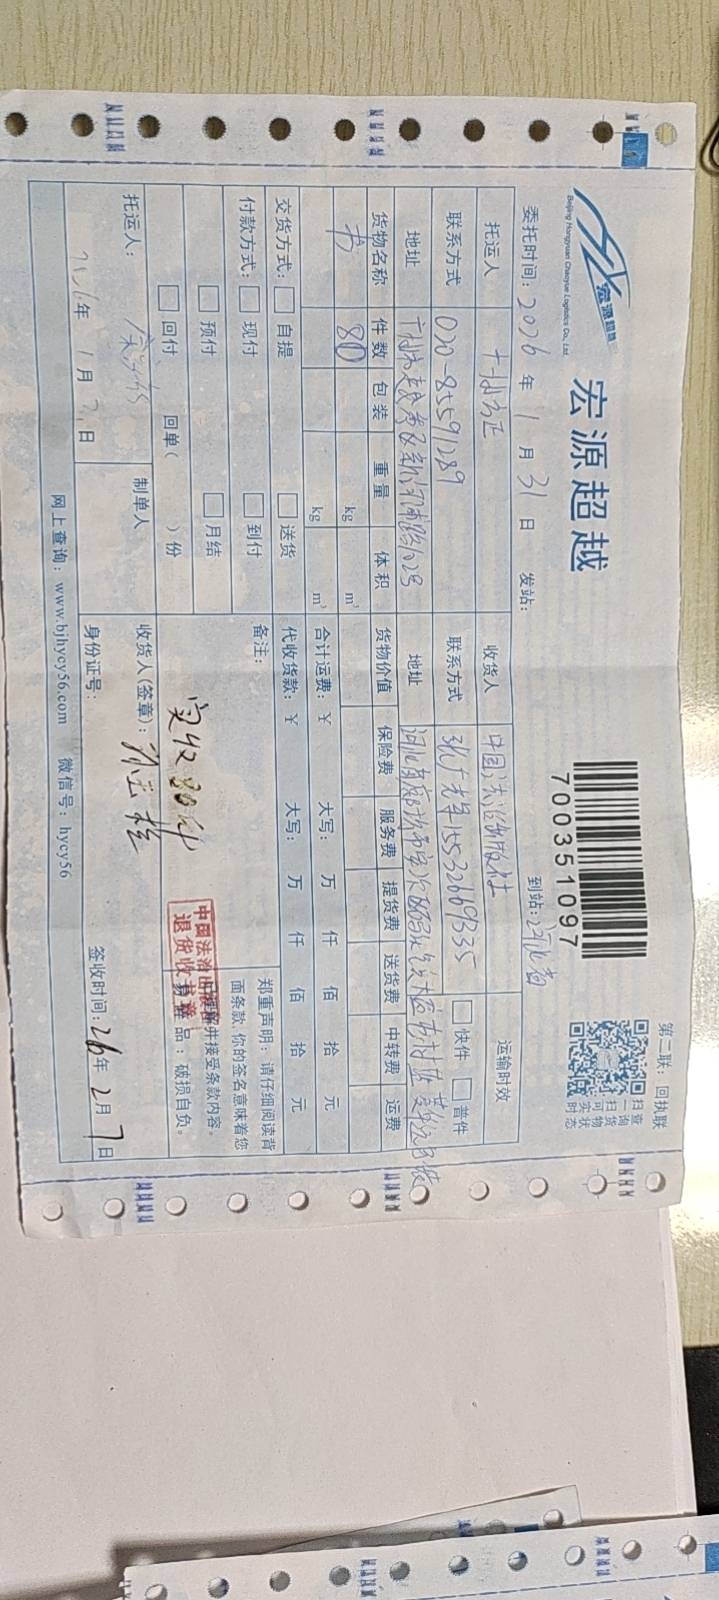 宏源超越
Beijing Hongyuan Chaoyue Logistics Co., Ltd.
宏源超越
700351097
第二联：回执联
扫查
一询
扫货
可物
实状
时态
委托时间：2026 年 1 月 31 日 发站： 到站：河北省
托运人 收货人 中国法治出版社 运输时效
联系方式 020-85591289 联系方式 15532669335 快件 普件
地址 地址
货物名称 件数 包装 重量 体积 货物价值 保险费 服务费 提货费 送货费 中转费 运费
书 80 kg m³
kg m³ 合计运费：¥ 大写： 万 仟 佰 拾 元
交货方式： 自提 送货 代收货款：¥ 大写： 万 仟 佰 拾 元
付款方式： 现付 到付 备注：
预付 月结
回付 回单( )份
实收80件
郑重声明：请仔细阅读背
面条款 你的签名意味着您
并接受条款内容。
品：破损自负。
中国法治出版社
退货收书章
托运人： 制单人 收货人(签章)：
年 1 月 日 身份证号： 签收时间：26年 2月 7日
网上查询：www.bjhycy56.com 微信号：hycy56